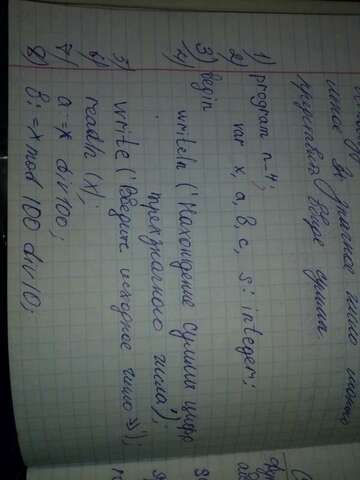 представить в виде суммы
1) program n-4;
2) var x, a, b, c, s: integer;
3) begin
4) writeln ('Нахождение суммы цифр
трехзначного числа');
5) write ('Введите исходное число=>');
6) readln (x);
7) a:=x div 100;
8) b:=x mod 100 div 10;